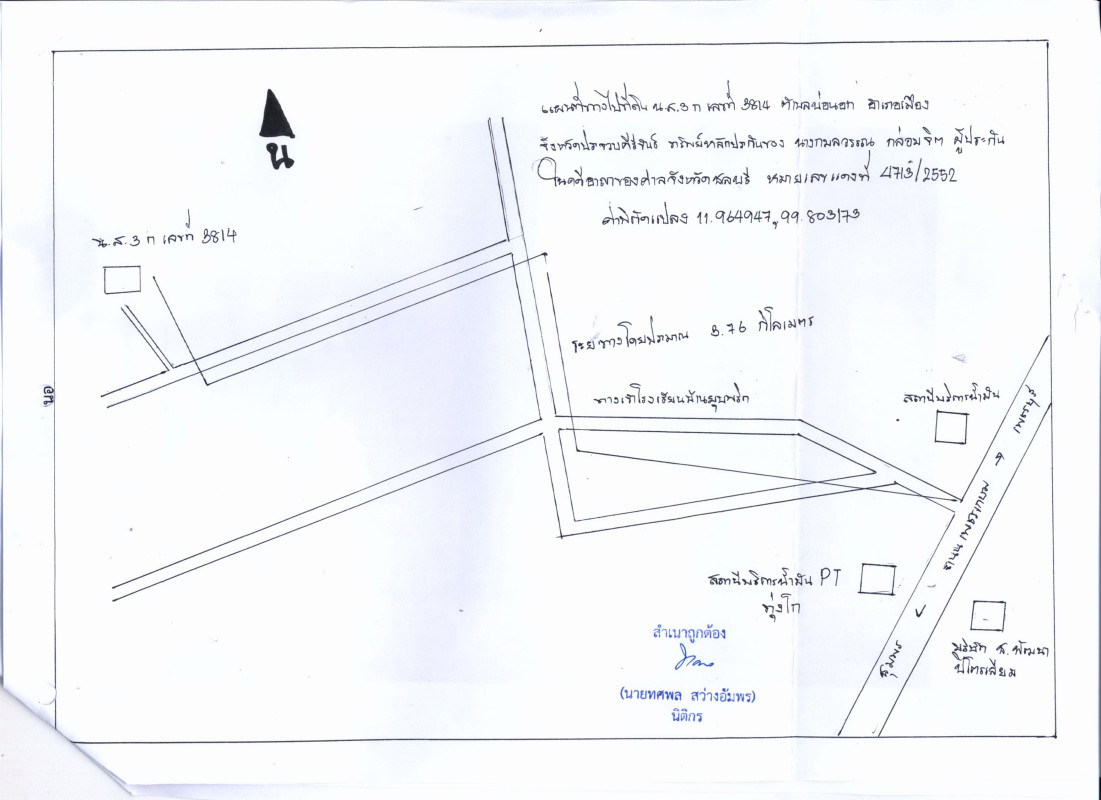 แผนที่ทางไปที่ดิน น.ส.3 ก เลขที่ 3814 ตำบลบ่อนอก อำเภอเมือง
จังหวัดประจวบคีรีขันธ์ ทรัพย์หลักประกันของ นางกมลวรรณ กล่อมจิต ผู้ประกัน
ในคดีอาญาของศาลจังหวัดชลบุรี หมายเลขแดงที่ 4713/2552
ค่าพิกัดแปลง 11.964947,99.803173
น
น.ส.3 ก เลขที่ 3814
ระยะทางโดยประมาณ 3.76 กิโลเมตร
ทางเข้าโรงเรียนบ้าน
สถานีบริการน้ำมัน
เพชรบุรี
ถนนเพชรเกษม
ชุมพร
สถานีบริการน้ำมัน PT
ทุ่งโก
บริษัท ส.พัฒนา
ปิโตรเลียม
สำเนาถูกต้อง
(นายทศพล สว่างอัมพร)
นิติกร